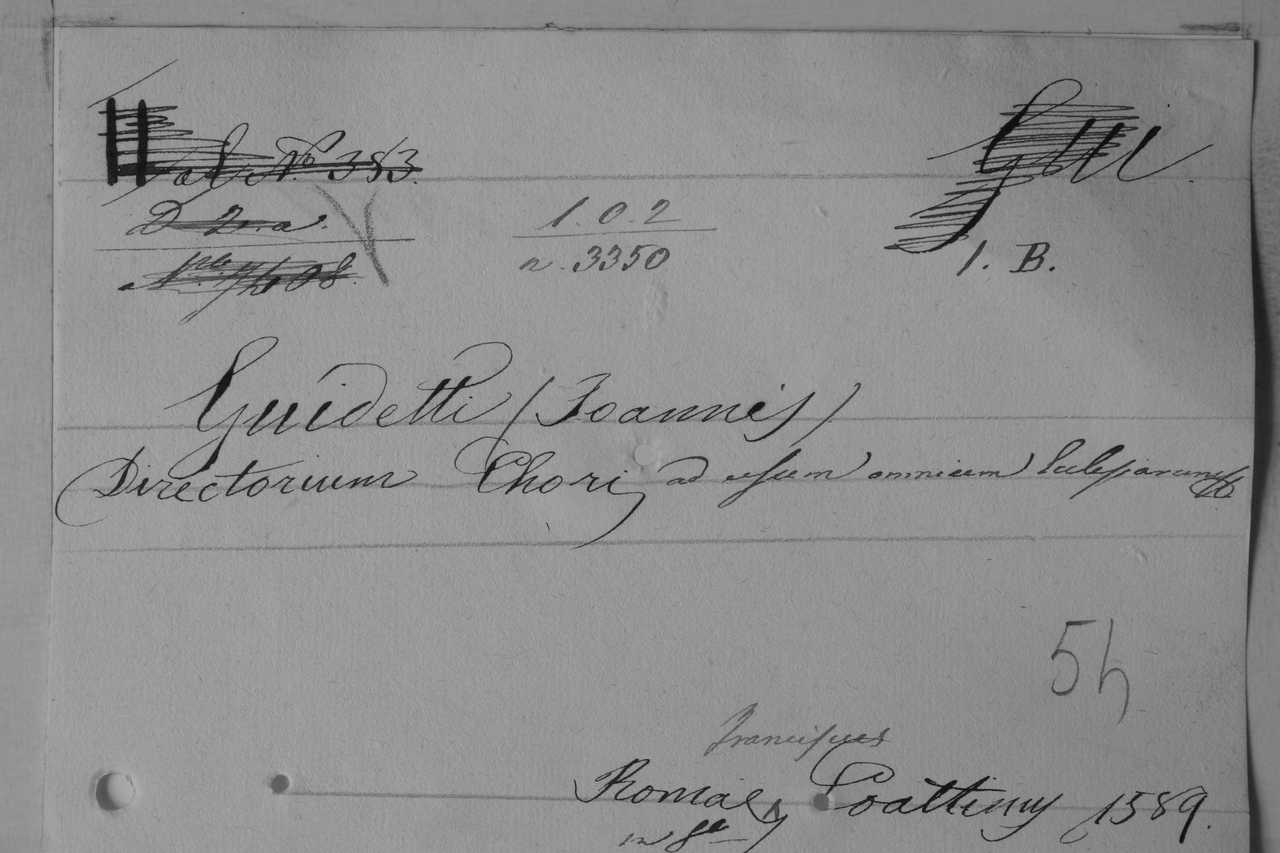 Cat N.º 353. GM.
D 2. a. 1. 0. 2
n. 3350 1. B.
Guidetti (Joannes)
Directorium Chori, ad usum omnium
5h
Franciscus
Romae, Coattinus 1589.
in 8º